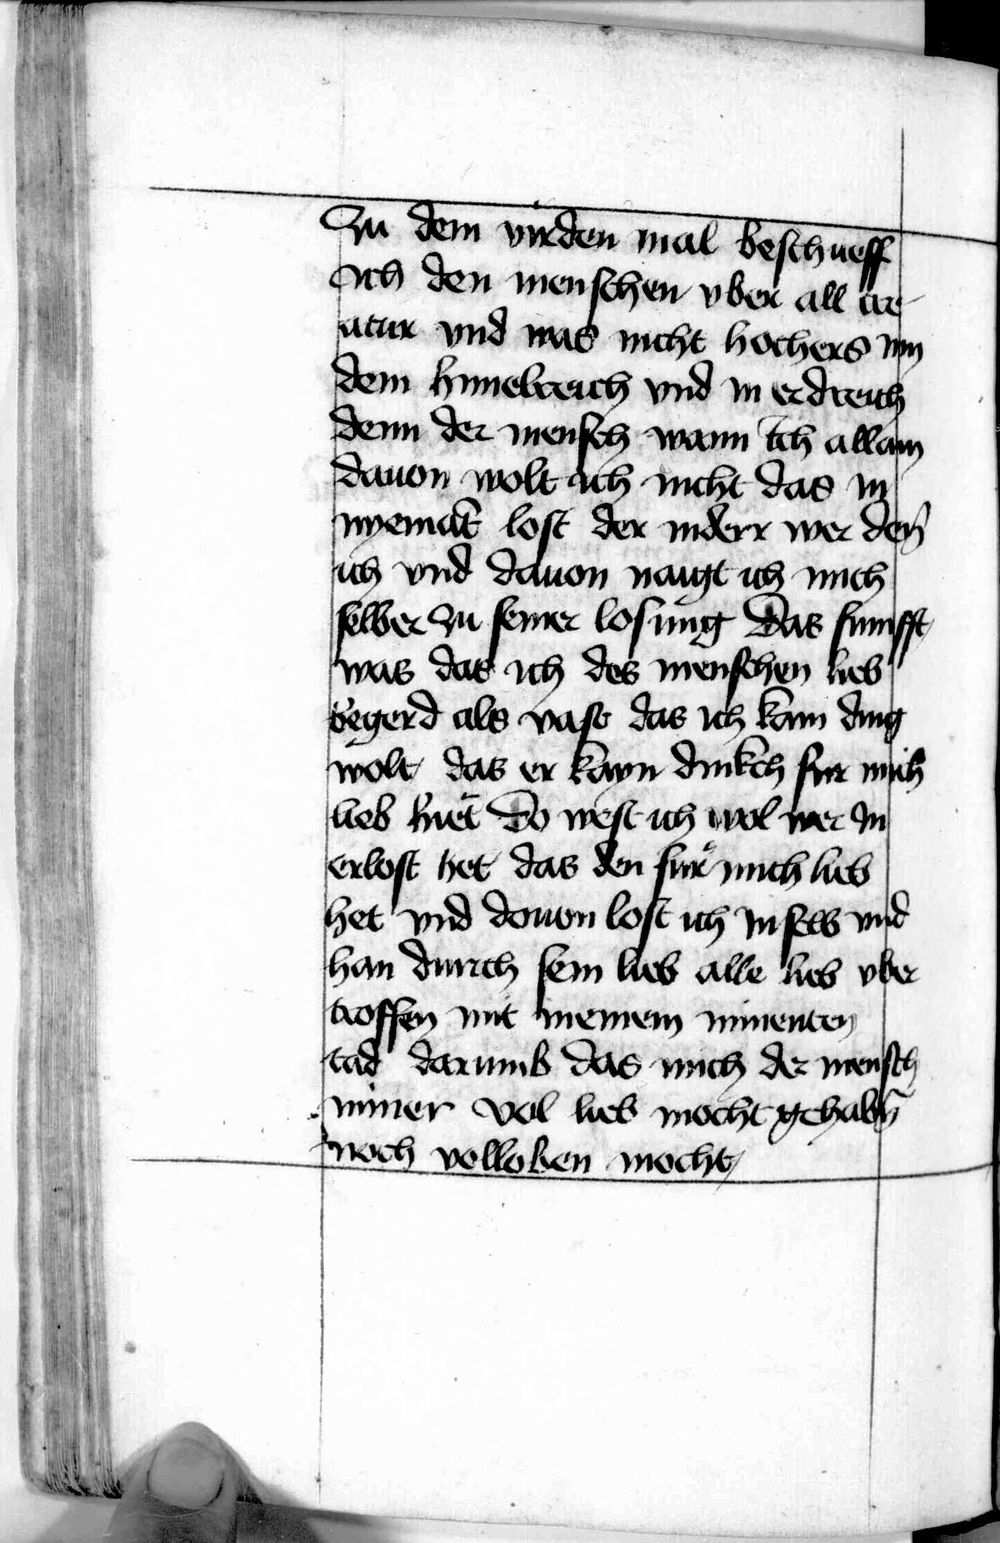 Zu dem virden mal beschueff
ich den menschen vber all cre
atur vnd was nicht hochers inn
dem himelreich vnd in erdreich
denn der mensch wann ich allain
dauon wolt ich nicht das in
nyemāt lost der inderr wer deñ
ich vnd dauon naigt ich mich
selber zu seiner losung Das funfft
was das ich des menschen lieb
begerd als vast das ich kain ding
wolt das er kayn dinkch fur mich
lieb hiet Do west ich wol wer In
erlost het das den fur mich lieb
het vnd douon lost ich in selb vnd
han durch sein lieb alle lieb vber
troffen mit meinem minenten
tad darumb das mich der mensch
nimer vol lieb mocht gehabñ
noch volloben mocht